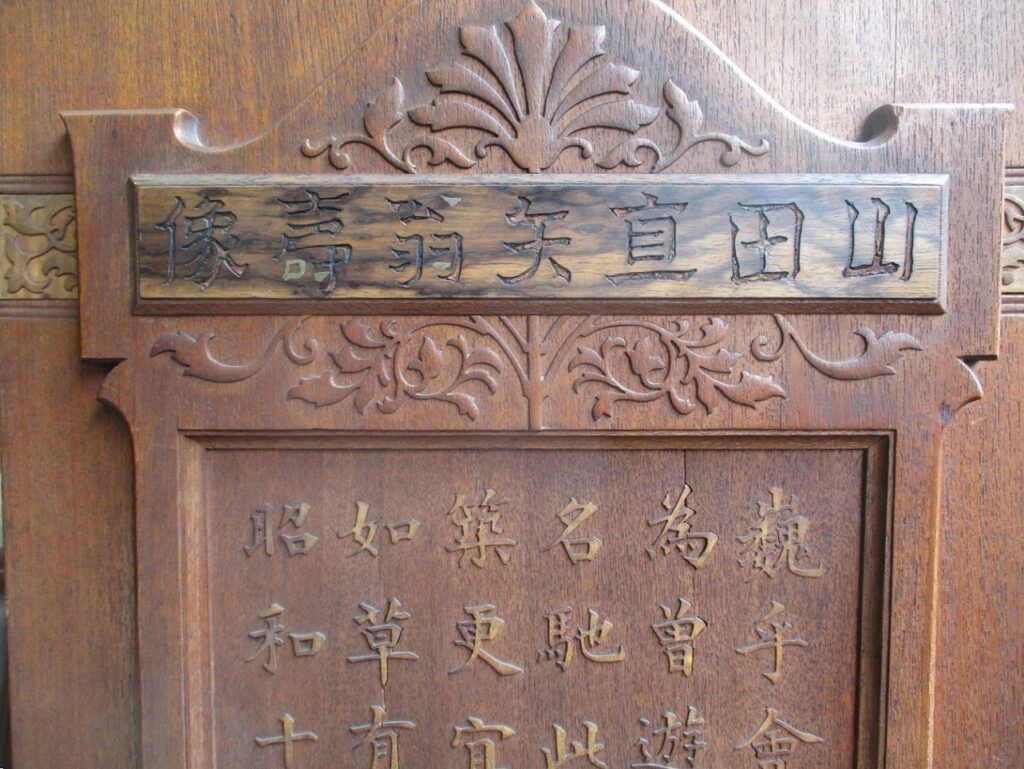 山田直矢翁壽像
巍乎會
為曽遊
名馳此
築更宜
如草有
昭和十